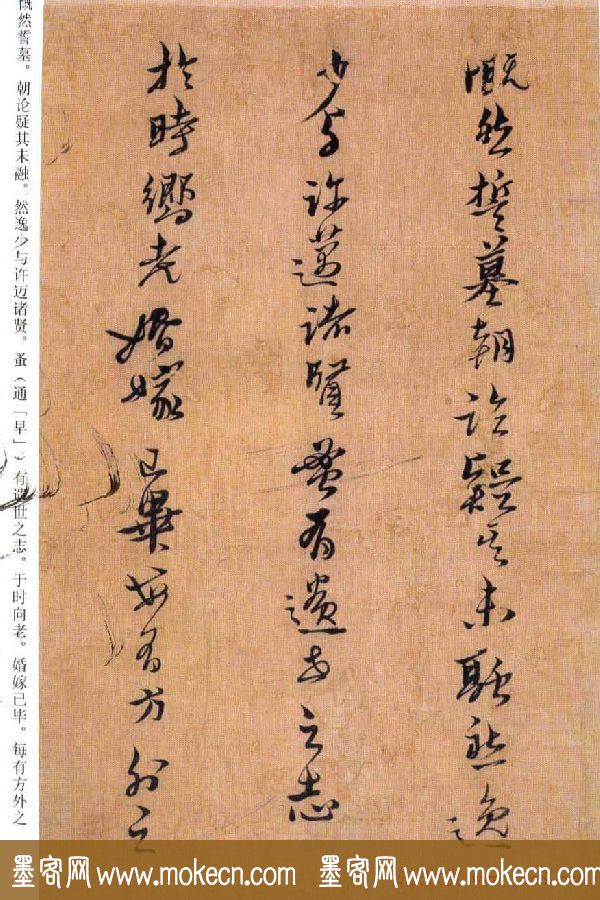 慨然誓墓朝论疑其未融然逸
少与许迈诸贤蚤有遗世之志
於時嚮老婚嫁已畢每有方外之
慨然誓墓。朝论疑其未融。然逸少与许迈诸贤。蚤（通「早」）有遗世之志。于时向老。婚嫁已毕。每有方外之
墨客网 www.mokecn.com 墨客网 www.mokecn.com